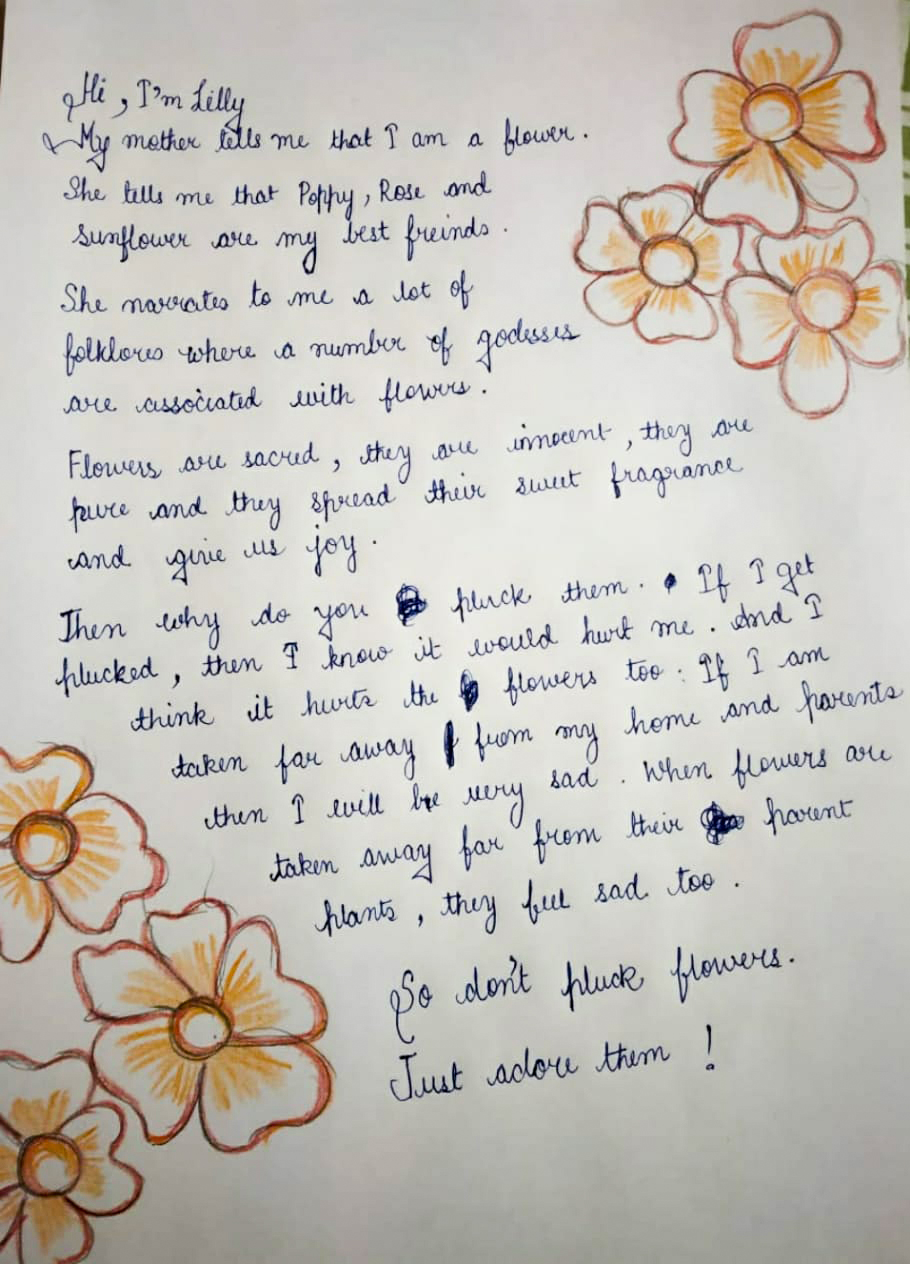 Hi, I'm Lilly
My mother tells me that I am a flower.
She tells me that Poppy, Rose and
sunflower are my best freinds.
She narrates to me a lot of
folklores where a number of godesses
are associated with flowers.
Flowers are sacred, they are innocent, they are
pure and they spread their sweet fragrance
and give us joy.
Then why do you pluck them. If I get
plucked, then I know it would hurt me. And I
think it hurts the flowers too. If I am
taken far away from my home and parents
then I will be very sad. When flowers are
taken away far from their parent
plants, they feel sad too.
So don't pluck flowers.
Just adore them!